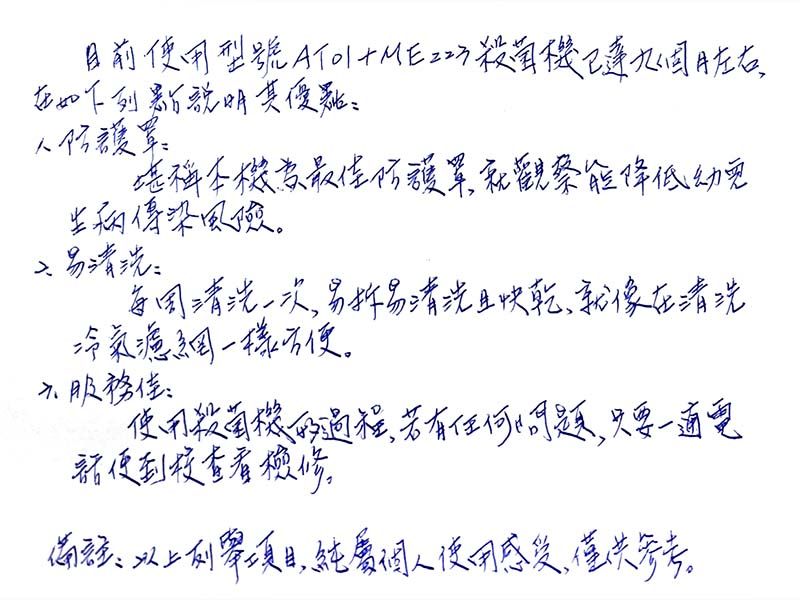 目前使用型號AT01+ME223殺菌機已達九個月左右,
在如下列點說明其優點:
1、防護罩:
堪稱本機為最佳防護罩,就觀察能降低幼兒
生病傳染風險。
2、易清洗:
每周清洗一次,易拆易清洗且快乾,就像在清洗
冷氣濾網一樣方便。
3、服務佳:
使用殺菌機的過程,若有任何問題,只要一通電
話便到校查看檢修。
備註:以上列舉項目,純屬個人使用感受,僅供參考。